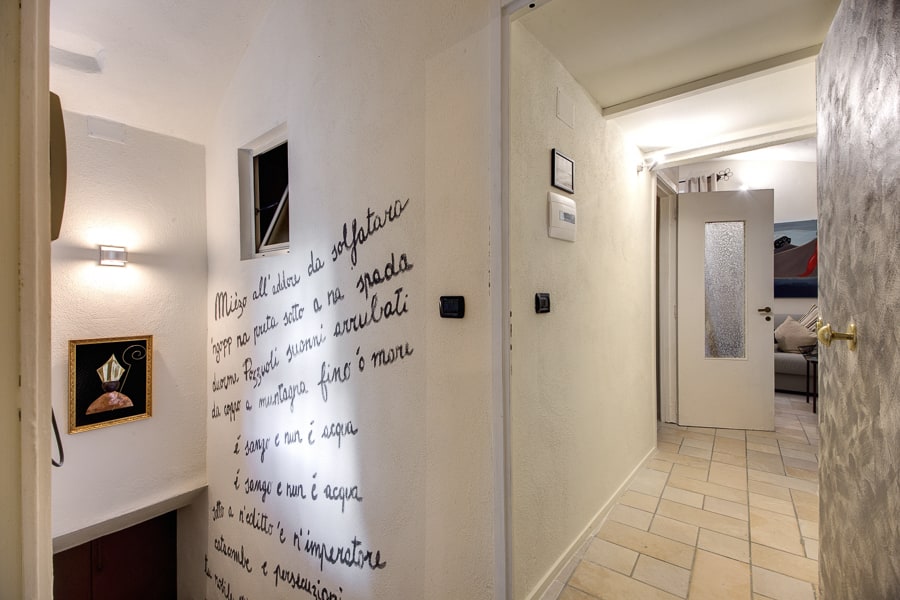 Miézo all'addore da solfatara
'ngopp na preta sotto a na spada
duorme Pozzuoli suonni arrubati
da coppo a muntagna fino ó mare
é sango e nun é acqua
é sango e nun é acqua
sotto a n'editto 'e n'imperatore
catacombe e persecuzioni